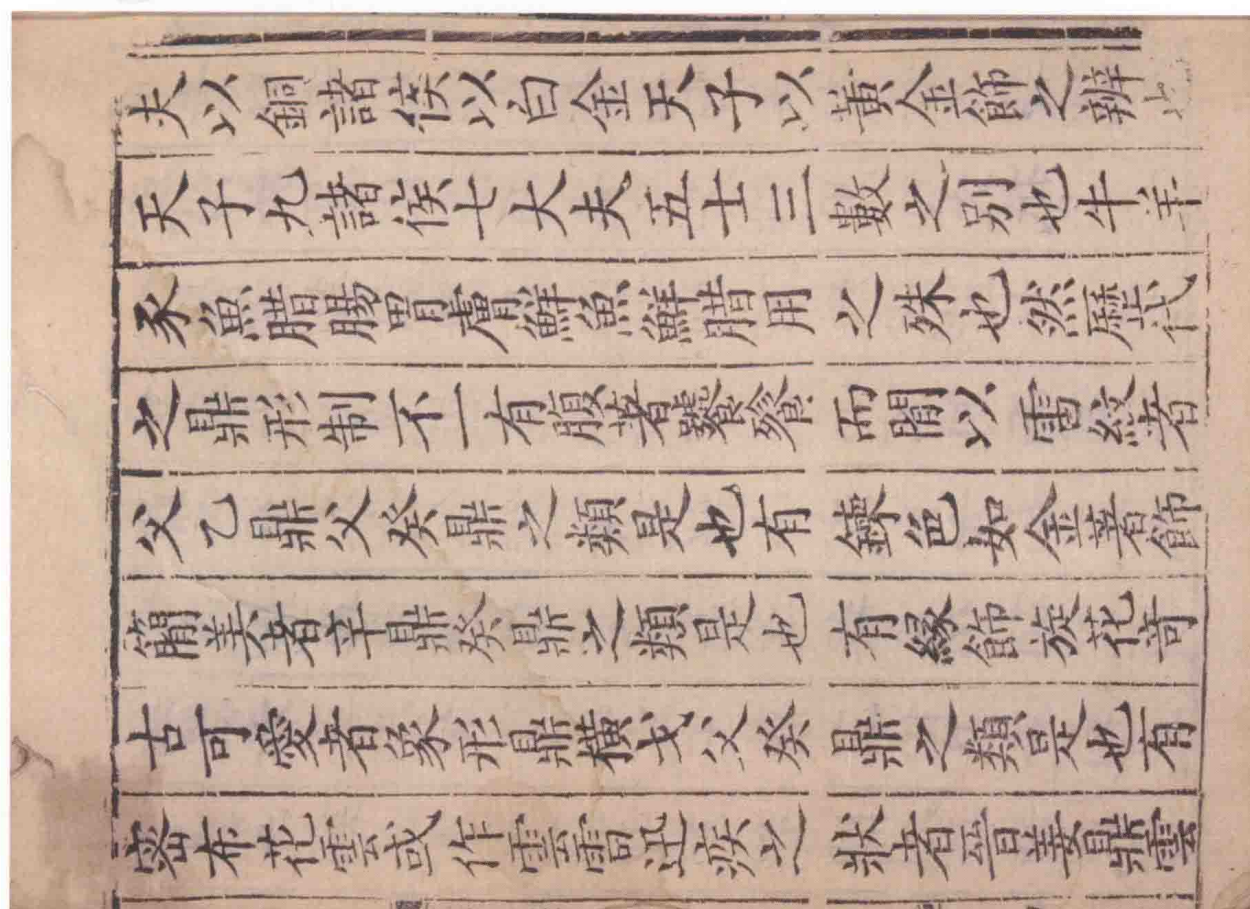 夫以銅諸侯以白金天子以黃金飾之辨也
天子九諸侯七大夫五士三數之別也牛羊
豕魚腊腸胃膚鮮魚鮮腊用之殊也然歷代
之鼎形制不一有腹著饕餮而間以雷紋者
父乙鼎父癸鼎之類是也有鍊色如金著飾
簡美者辛鼎癸鼎之類是也有緣飾旋花奇
古可愛者象形鼎橫戈父癸鼎之類是也有
密布花雲或作雲雷迅疾之狀者晉姜鼎雲